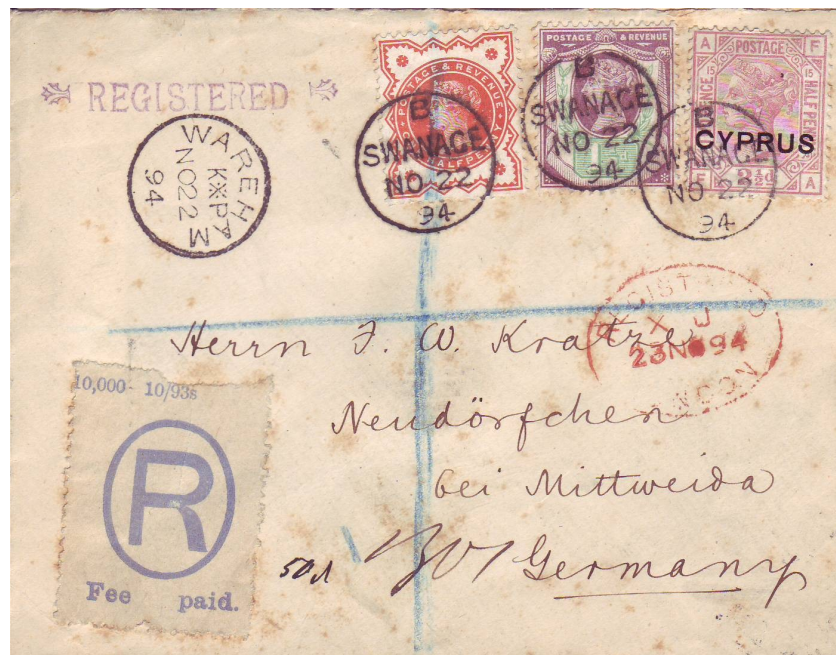 REGISTERED
WAREHAM
K PY
NO 22
94
POSTAGE & REVENUE
HALFPENNY
B
SWANAGE
NO 22
94
POSTAGE & REVENUE
1
B
SWANAGE
NO 22
94
A POSTAGE F
15 15
PENCE HALFPE
CYPRUS
2½d
F A
B
SWANAGE
NO 22
94
REGIST
X J
23 NO 94
NDON
Herrn F. W. Kratzer
Neudörfchen
bei Mittweida
Germany
10,000 - 10/93s
R
Fee paid.